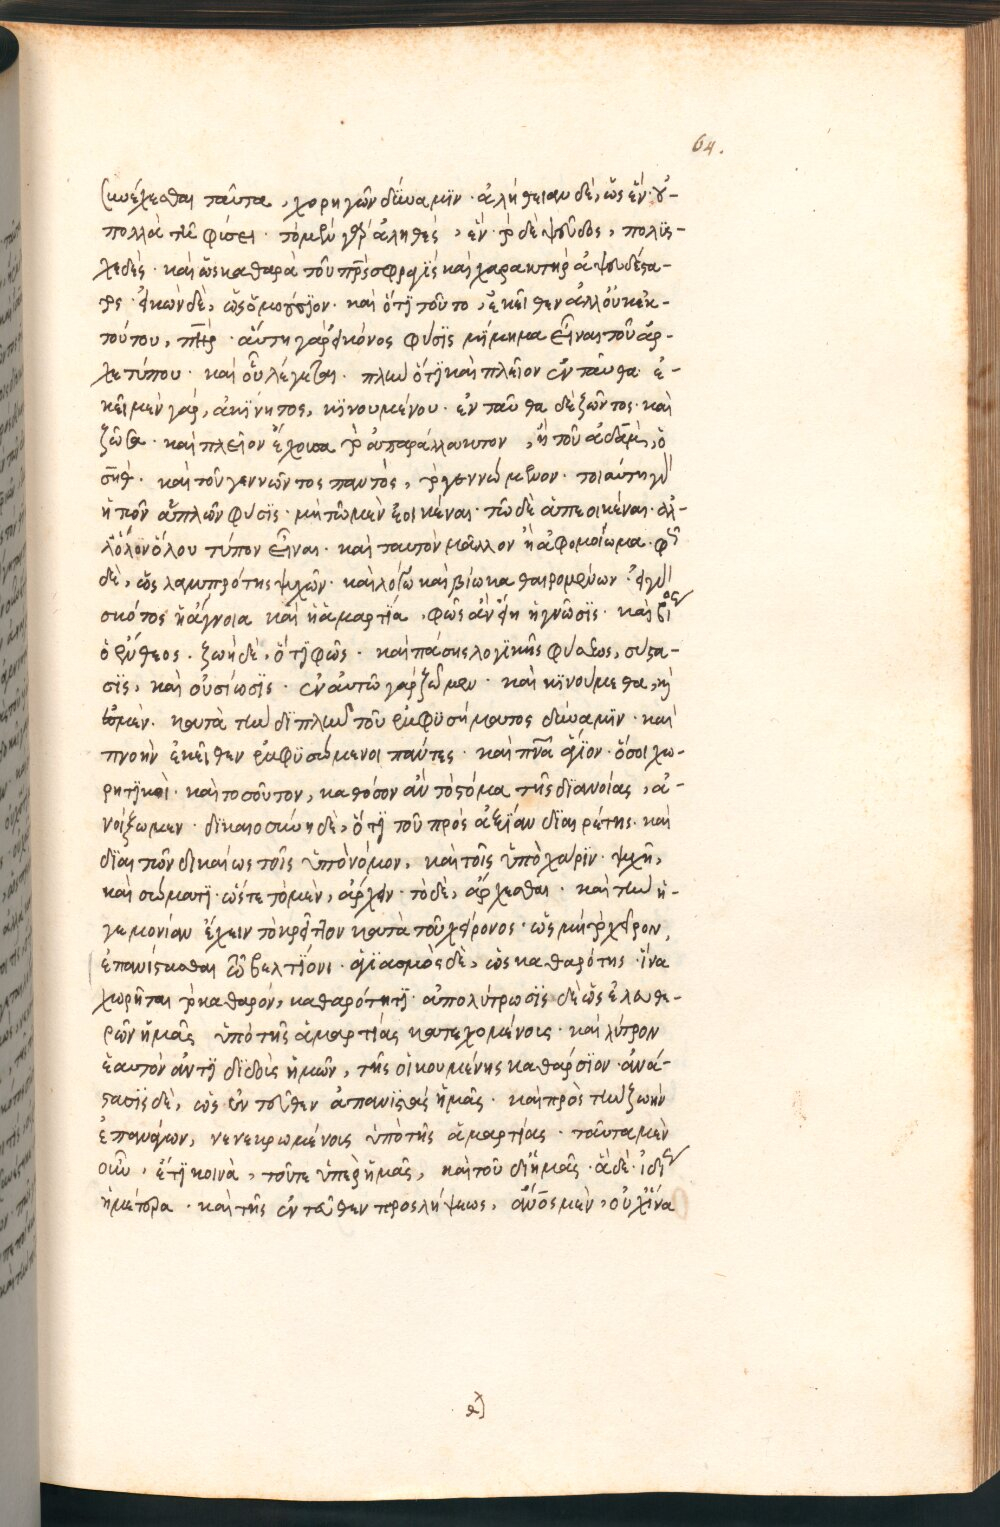 64.
συνέχεσθαι ταῦτα, χορηγῶν δύναμϊν· ἀλήθειαν δὲ, ὡς ἓν· οὐ-
πολλὰ τῆ φύσει· τὸ μὲν γὰρ ἀληθές, ἕν· τὸ δὲ ψεῦδος, πολϋς-
χεδὲς· καὶ ὡς καθαρὰ τοῦ πρς σφραγὶς καὶ χαρακτὴρ ἀψευδέστα-
τος· εἰκὼν δὲ, ὡς ὁμοούσϊον· καὶ ὅτϊ τοῦτο, ἐκεῖθεν ἀλλ' οὐκ ἐκ-
τούτου, πηρ· αὕτη γὰρ εἰκόνος φύσϊς μΐμημα εἶναι τοῦ ἀρ-
χετύπου· καὶ οὗ λέγεται· πλὴν ὅτϊ καὶ πλεῖον ἐνταῦθα· ἐ-
κεῖ μὲν γὰρ, ἀκϊνητος, κϊνουμένου· ἐνταῦθα δὲ ζῶντος· καὶ
ζῶσα· καὶ πλεῖον ἔχουσα τὸ ἀπαράλλακτον, ἢ τοῦ ἀδὰμ, ὁ
σὴθ· καὶ τοῦ γεννῶντος παντὸς, τὸ γεννώμενον· τοιαύτη γὰρ
ἡ τῶν ἁπλῶν φύσϊς· μὴ τῶ μὲν ἐοικέναι· τῶ δὲ ἀπεοικέναι· ἀλ-
λ' ὅλον ὅλου τύπον εἶναι· καὶ ταυτὸν μᾶλλον ἢ ἀφομοίωμα· φῶς
δὲ, ὡς λαμπρότης ψυχῶν· καὶ λόγω καὶ βίω καθαιρομένων· εἰ γὰρ
σκότος ἡ ἄγνοια καὶ ἡ ἁμαρτία, φῶς ἂν εἴη ἡ γνῶσϊς· καὶ βίος
ὁ ἔνθεος· ζωὴ δὲ, ὅτϊ φῶς· καὶ πάσης λογϊκῆς φύσεως, σύστα-
σϊς, καὶ οὐσίωσϊς· ἐν αὐτῶ γὰρ ζῶμεν· καὶ κϊνούμεθα, καὶ
ἐσμὲν· κατὰ τὴν δϊπλῆν τοῦ ἐμφϋσήματος δύναμϊν· καὶ
πνοὴν ἐκεῖθεν ἐμφϋσώμενοι πάντες· καὶ πνα ἅγϊον· ὅσοι χω-
ρητϊκοὶ· καὶ τοσοῦτον, καθόσον ἂν τὸ στόμα τῆς δϊανοίας, ἀ-
νοίξωμεν· δϊκαιοσύνη δὲ, ὅτϊ τοῦ πρὸς ἀξϊαν δϊαιρέτης· καὶ
δϊαιτῶν δικαίως τοῖς ὑπὸ νόμον, καὶ τοῖς ὑπὸ χάρϊν· ψυχῆ,
καὶ σώματϊ· ὥστε τὸ μὲν, ἄρχειν· τὸ δὲ, ἄρχεσθαι· καὶ τὴν ἡ-
γεμονίαν ἔχειν τὸ κρεῖττον κατὰ τοῦ χείρονος· ὡς μὴ τὸ χεῖρον,
ἐπανίστασθαι τῶ βελτϊονι· ἁγϊασμὸς δὲ, ὡς καθαρότης· ἵνα
χωρῆται τὸ καθαρὸν, καθαρότητϊ· ἀπολύτρωσϊς δὲ ὡς ἐλευθε-
ρῶν ἡμᾶς ὑπὸ τῆς ἁμαρτίας κατεχομένους· καὶ λύτρον
ἑαυτὸν ἀντϊ δϊδοὺς ἡμῶν, τῆς οἰκουμένης καθάρσϊον· ἀνά-
στασϊς δὲ, ὡς ἐντεῦθεν ἀπανϊστὰς ἡμᾶς· καὶ πρὸς τὴν ζωὴν
ἐπανάγων, νενεκρωμένους ὑπὸ τῆς ἁμαρτίας· ταῦτα μὲν
οὖν, ἔτϊ κοινὰ, τοῦτε ὑπὲρ ἡμᾶς, καὶ τοῦ δϊ ἡμᾶς· ἃ δὲ· ἰδίως
ἡμέτερα· καὶ τῆς ἐντεῦθεν προσλήψεως, ἄνος μὲν, οὐχ ἵνα